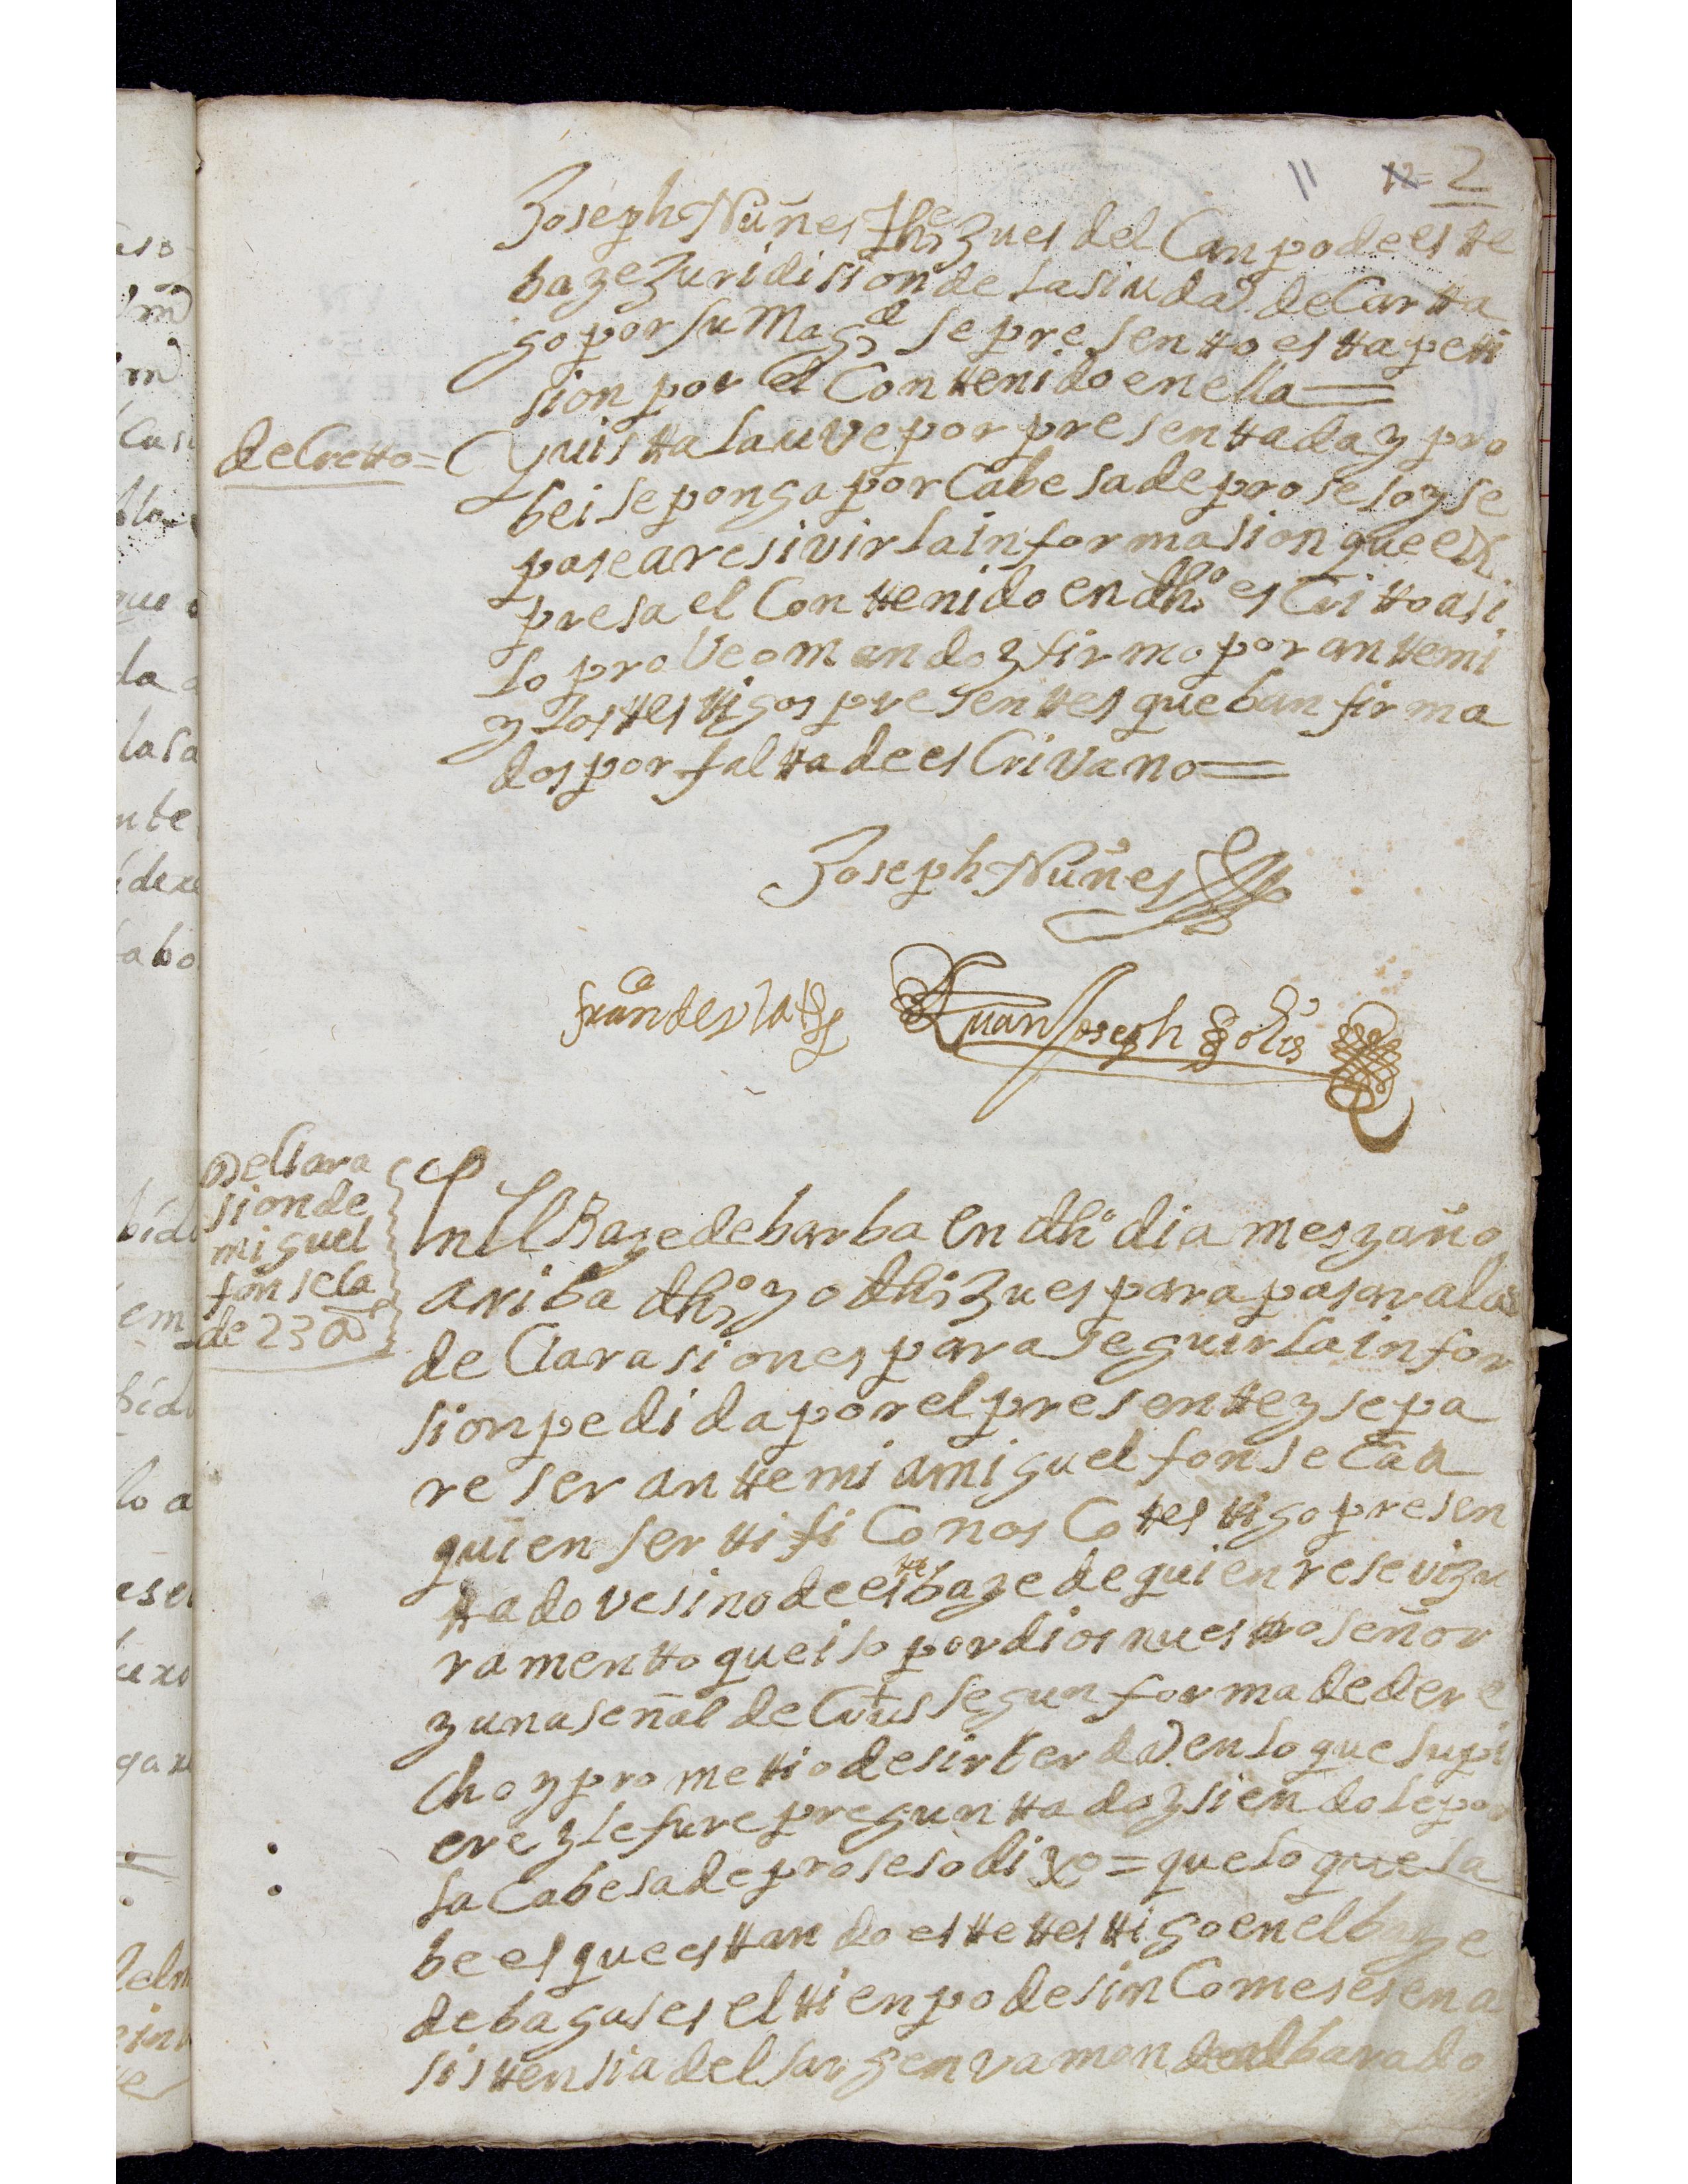 11 12 2
Joseph Nuñes thẽ Zues del Canpo de este
baze Zuridision de la siudad de Carta
go por su Magd se presento esta peti
sion por el Contenido en ella =
deCretto = Y uista la uve por presenttada y pro
bei se ponga por Cabesa de proseso y se
pase a resivir la informasion que ex
presa el Conttenido en dho esCritto asi
lo proveo mando y firmo por antte mi
y los testtigos presenttes que ban firma
dos por faltta de esCrivano =
Joseph Nuñes
Juan Joseph Solis
DeClara
sion de
miguel
fonseca
de 23 a
En El Baze de barba en dho dia mes y año
ariba dho yo dho Zues para pasar a las
deClarasiones para seguir la infor
sion pedida por el presentte y se pa
reser antte mi a miguel fonseca a
quien serttifiCo ConosCo testtigo presen
ttado vesino de este baze de quien resevi zu
ramentto que iso por dios nuesttro señor
y una señal de Crus segun forma de dere
cho y promettio desir berdad en lo que supi
ere y le fure pregunttado y siendole por
la Cabesa de proseso dixo = que lo que sa
be es que esttando este testtigo en el baze
de bagases el ttienpo de sinCo meses en a
sisttensia del sargen ramon de albarado